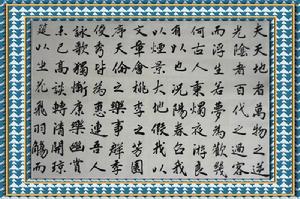 夫天地者萬物之逆
光陰者百代之過客
而浮生若夢為歡幾
何古人秉燭夜游良
有以也況陽春召我
以煙景大地假我以
文章會桃李之芳園
序天倫之樂事群季
俊秀皆為惠連吾人
詠歌獨慚康樂幽賞
未已高談轉清開瓊
筵以坐花飛羽觴而